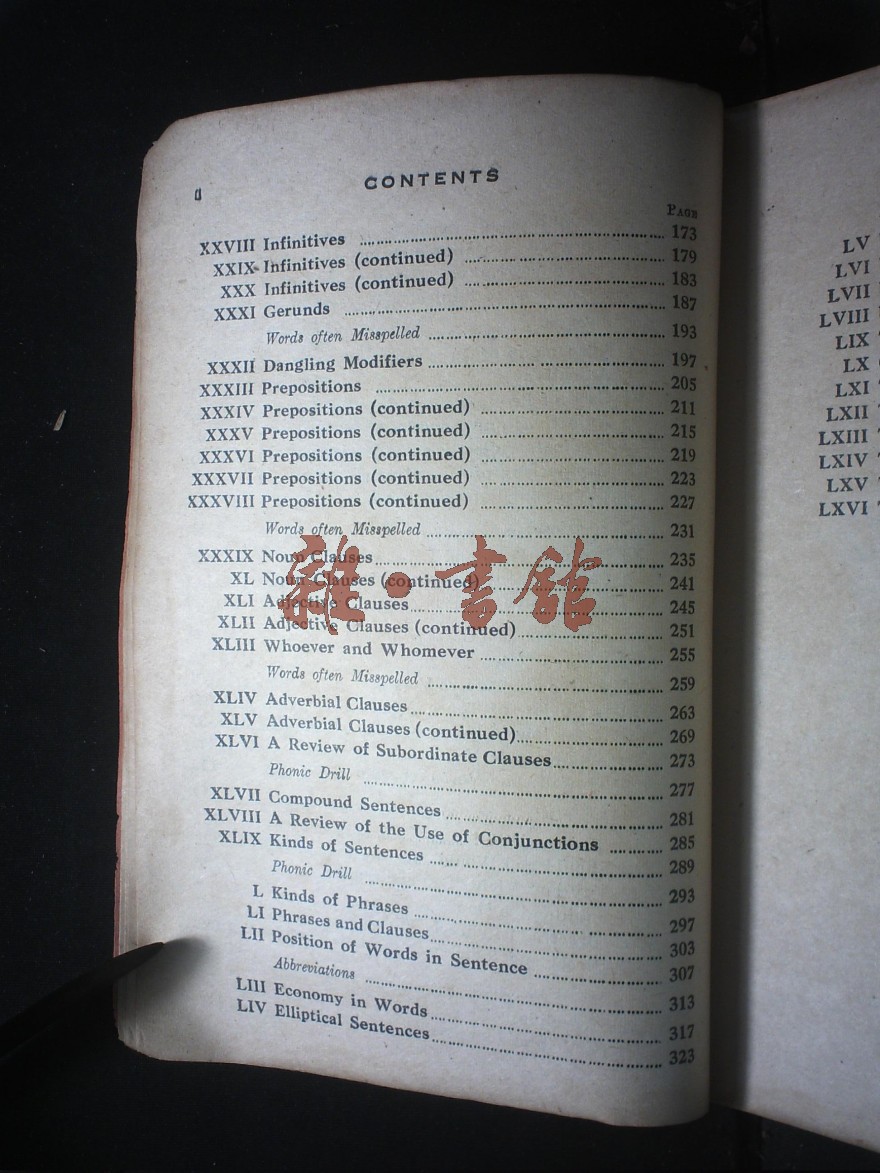 CONTENTS
PAGE
XXVIII Infinitives 173
XXIX Infinitives (continued) 179
XXX Infinitives (continued) 183
XXXI Gerunds 187
Words often Misspelled 193
XXXII Dangling Modifiers 197
XXXIII Prepositions 205
XXXIV Prepositions (continued) 211
XXXV Prepositions (continued) 215
XXXVI Prepositions (continued) 219
XXXVII Prepositions (continued) 223
XXXVIII Prepositions (continued) 227
Words often Misspelled 231
XXXIX Noun Clauses 235
XL Noun Clauses (continued) 241
XLI Adjective Clauses 245
XLII Adjective Clauses (continued) 251
XLIII Whoever and Whomever 255
Words often Misspelled 259
XLIV Adverbial Clauses 263
XLV Adverbial Clauses (continued) 269
XLVI A Review of Subordinate Clauses 273
Phonic Drill 277
XLVII Compound Sentences 281
XLVIII A Review of the Use of Conjunctions 285
XLIX Kinds of Sentences 289
Phonic Drill 293
L Kinds of Phrases 297
LI Phrases and Clauses 303
LII Position of Words in Sentence 307
Abbreviations 313
LIII Economy in Words 317
LIV Elliptical Sentences 323
雜·書館
LV
LVI
LVII
LVIII
LIX
LX
LXI
LXII
LXIII
LXIV
LXV
LXVI